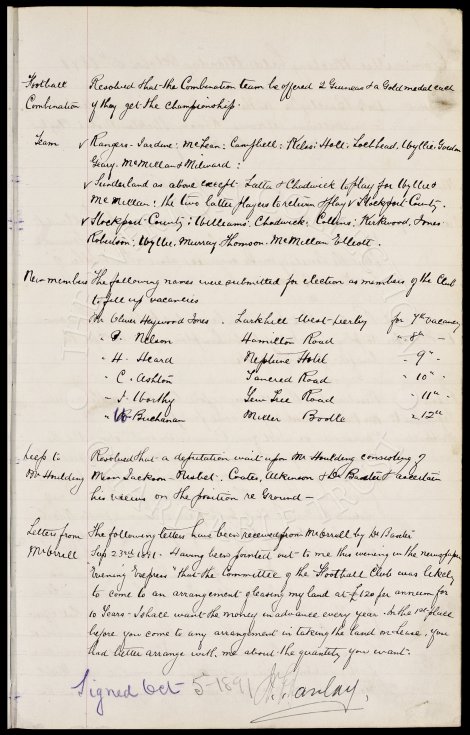 Football Resolved that the Combination team be offered 2 Guineas & a Gold medal each
Combination if they get the Championship.
Team v Rangers. Jardine: McLean: Campbell: Kelso: Holt: Lochhead. Wyllie: Gordon
Geary. McMillan & Milward.
v Sunderland as above except Latta & Chadwick to play for Wyllie &
McMillan: the two latter players to return & play v Stockport County.
v Stockport County: Williams: Chadwick: Collins: Kirkwood, Jones
Robertson: Wyllie. Murray Thomson. McMillan Elliott.
New members The following names were submitted for election as members of the Club
to fill up vacancies
Mr Oliver Heywood Jones. Larkhill West Derby for 7th vacancy
" Nelson Hamilton Road " 8th "
" H. Heard Neptune Hotel " 9" "
" C. Ashton Tancred Road " 10" "
" J. Worthy Yew Tree Road " 11" "
" W Buchanan Miller Bootle " 12"
Dep to Resolved that a deputation wait upon Mr Houlding consisting of
Mr Houlding Messrs Jackson - Nisbet. Coates, Atkinson & Dr Baxter & ascertain
his views on the position re Ground -
Letters from The following letters have been received from Mr Orrell by Dr Baxter
Mr Orrell Sep 23rd 1891. Having been pointed out to me this evening in the newspaper
"Evening Express" that the Committee of the Football Club was likely
to come to an arrangement of leasing my land at £120 per annum for
10 Years - I shall want the money in advance every year. In the 1st place
before you come to any arrangement in taking the land on lease, you
had better arrange with me about the quantity you want.
Signed Oct 5 - 1891